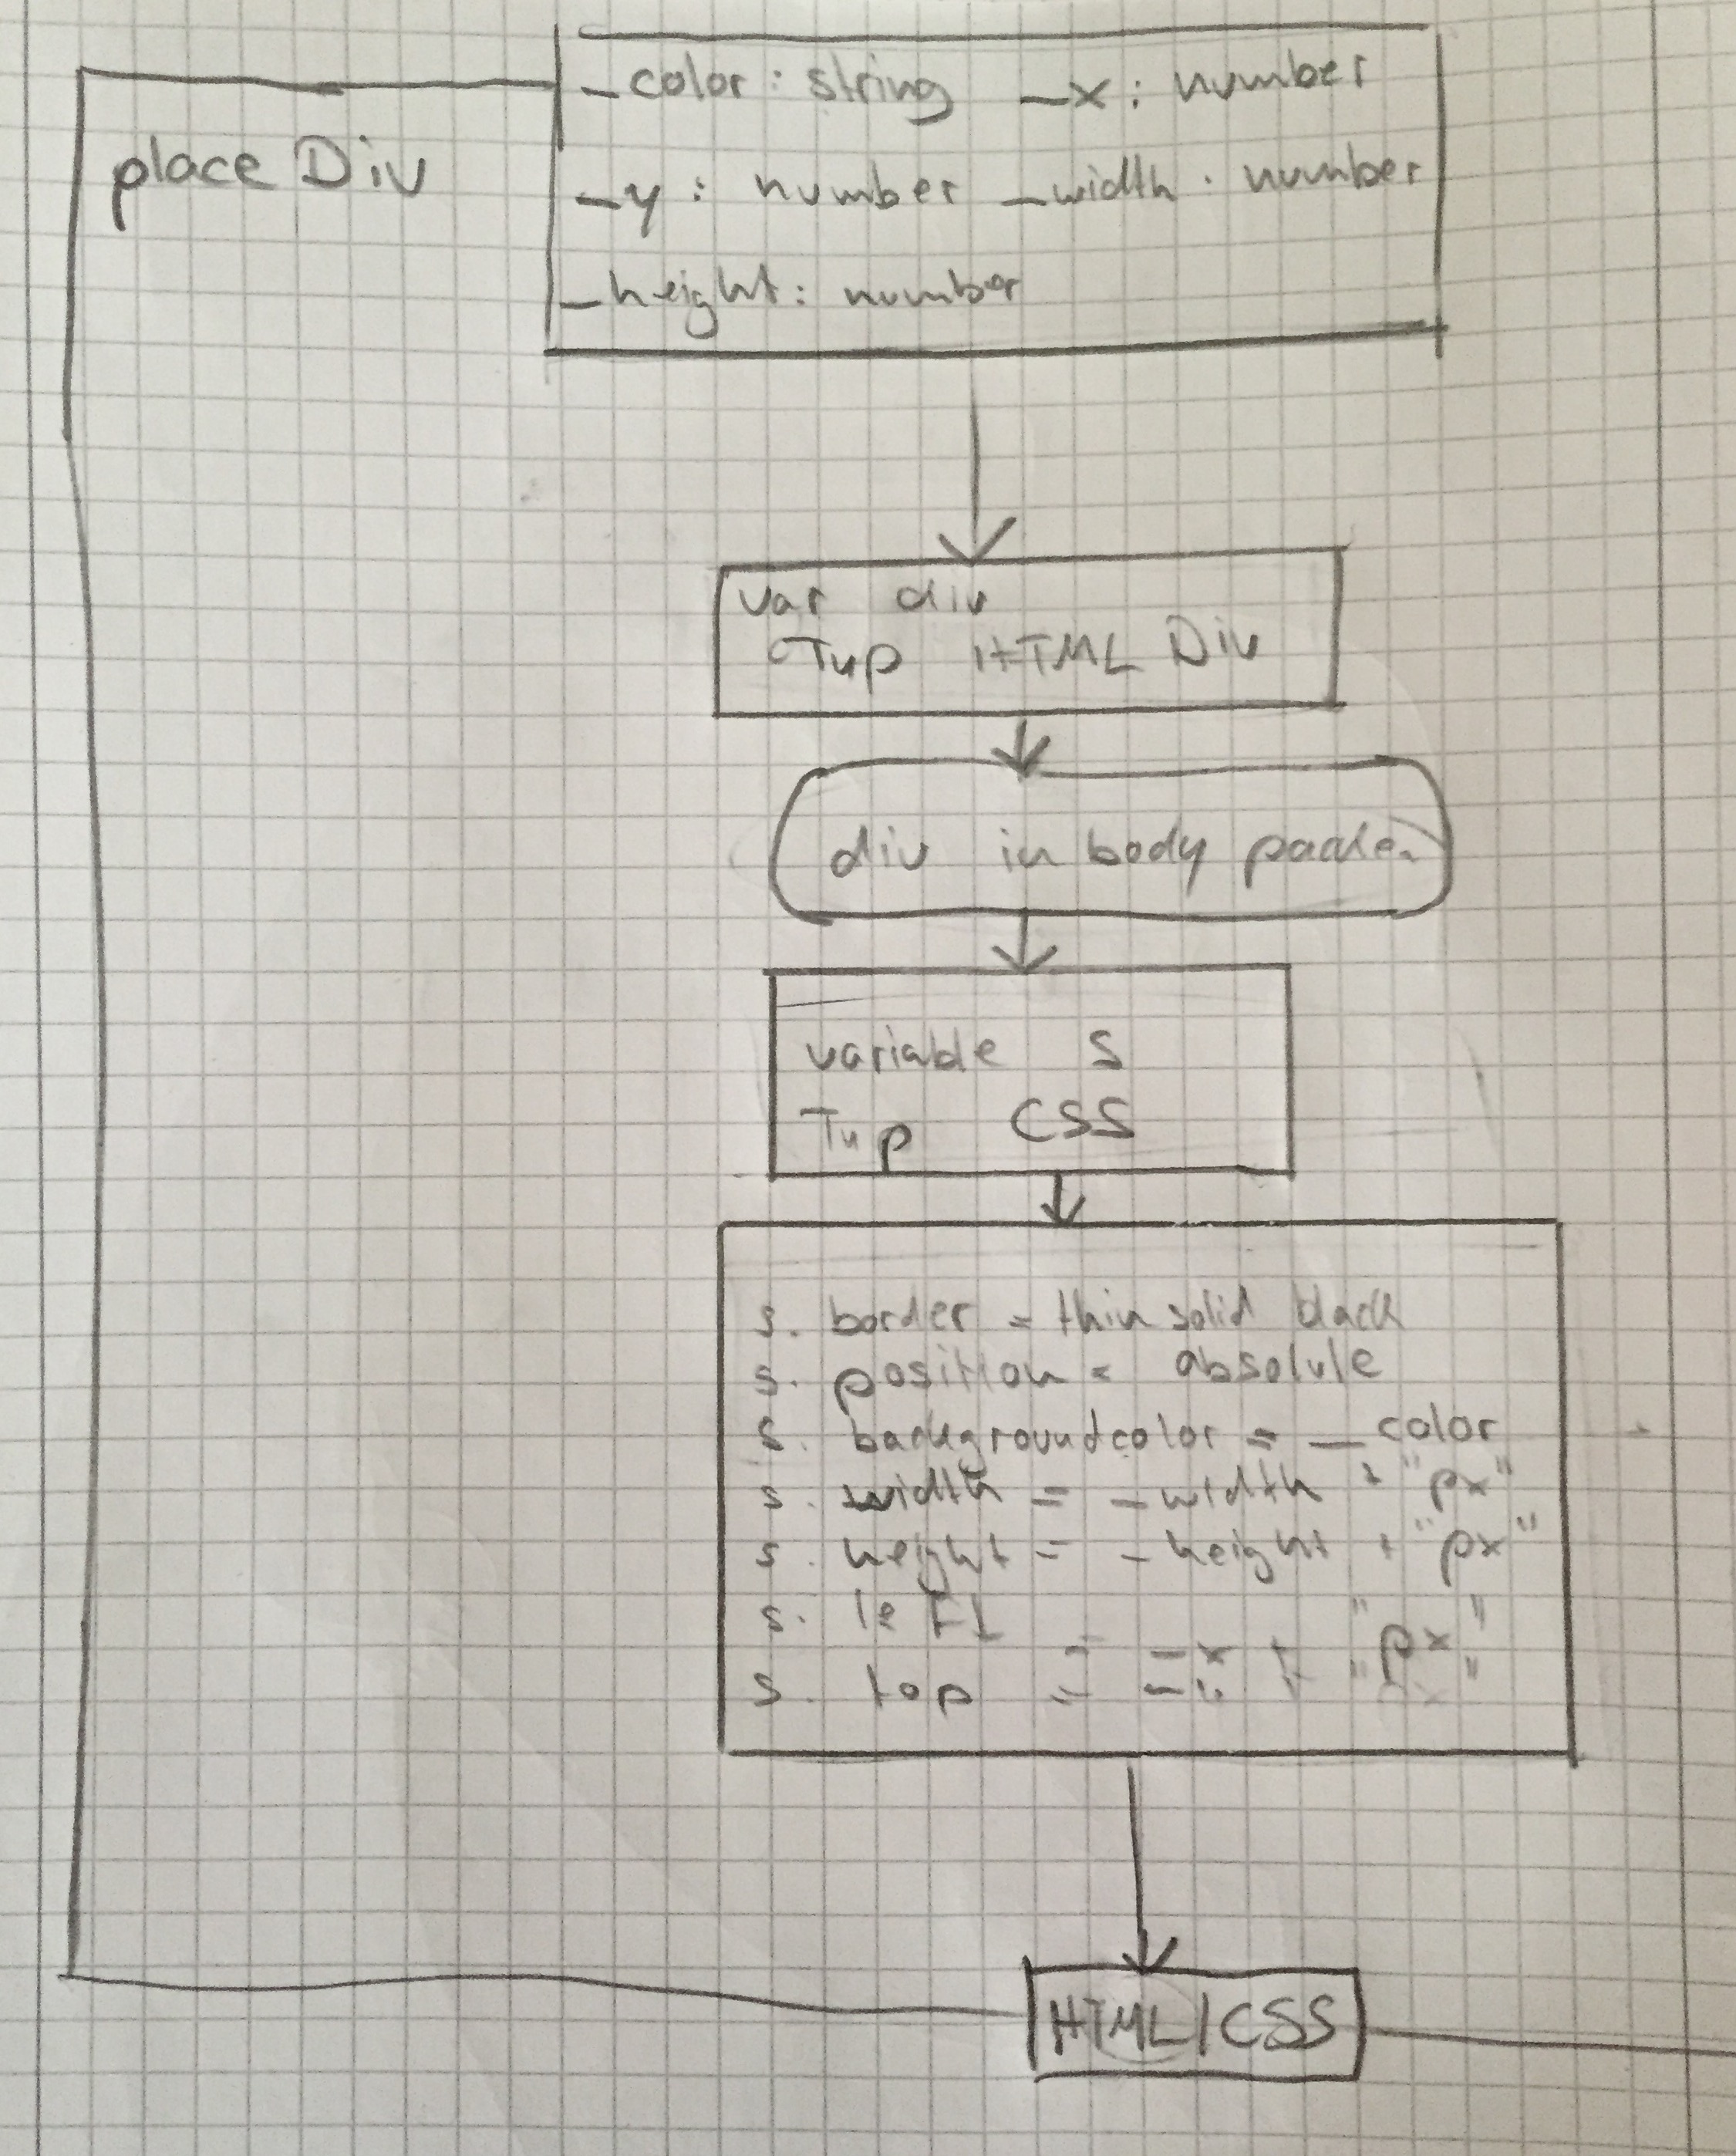 place Div
_color: string _x: number
_y: number _width: number
_height: number
var div
Typ HTML Div
div in body packen
variable s
Typ CSS
s. border = thin solid black
s. position = absolute
s. backgroundcolor = _color
s. width = _width + "px"
s. height = _height + "px"
s. left = _x + "px"
s. top = _y + "px"
HTML/CSS